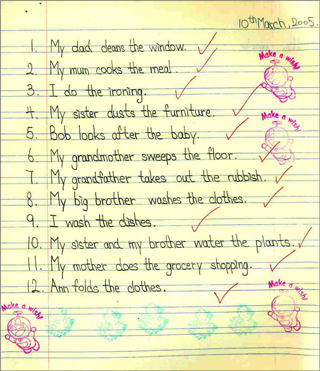 10th March, 2005.
Make a wish!
1. My dad cleans the window.
2. My mum cooks the meal.
3. I do the ironing.
4. My sister dusts the furniture.
Make a wish!
5. Bob looks after the baby.
6. My grandmother sweeps the floor.
7. My grandfather takes out the rubbish.
Make a wish!
8. My big brother washes the clothes.
9. I wash the dishes.
10. My sister and my brother water the plants.
11. My mother does the grocery shopping.
12. Ann folds the clothes.
Make a wish!
Make a wish!